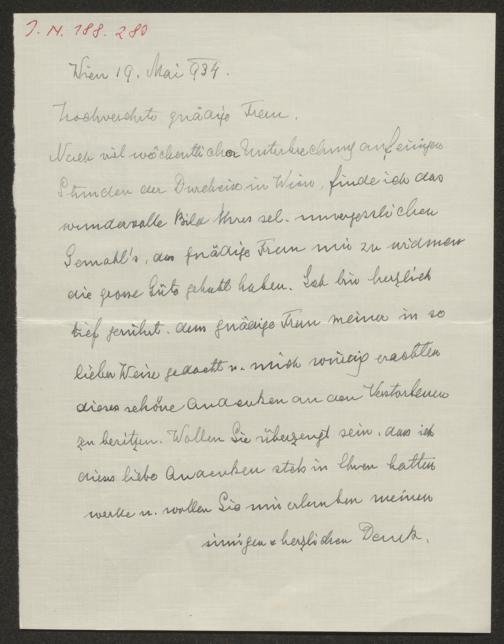 J. N. 188.280
Wien 19. Mai 934.
Hochverehrte gnädige Frau.
Nach vielwöchentlicher Unterbrechung auf einige
Stunden der Durchreise in Wien, finde ich das
wundervolle Bild Ihres sel. unvergesslichen
Gemahl's, das gnädige Frau mir zu widmen
die grosse Güte gehabt haben. Ich bin herzlich
tief gerührt, dass gnädige Frau meiner in so
lieber Weise gedacht u. mich würdig erachten
dieses schöne Andenken an den Verstorbenen
zu besitzen. Wollen Sie überzeugt sein, dass ich
dieses liebe Andenken stets in Ehren halten
werde u. wollen Sie mir erlauben meinen
innigen & herzlichen Dank.